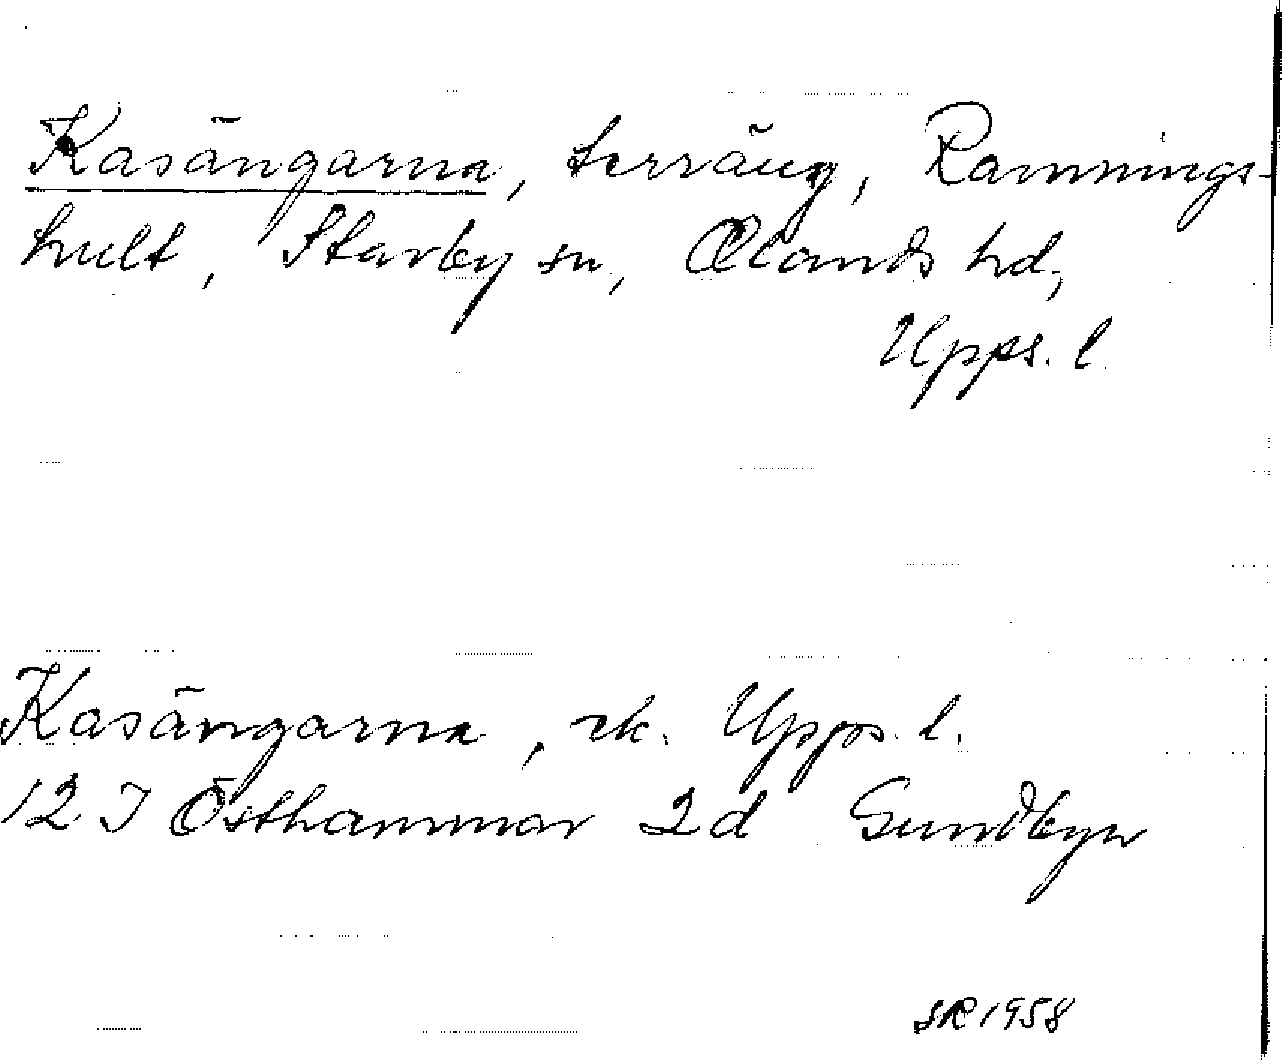 Kasängarna, terräng, Rannings-
hult, Stavby sn, Olands hd,
Upps. l
Kasängarna, ek. Upps. l.
12 I Östhammar 2d Sundbyn
SR 1958